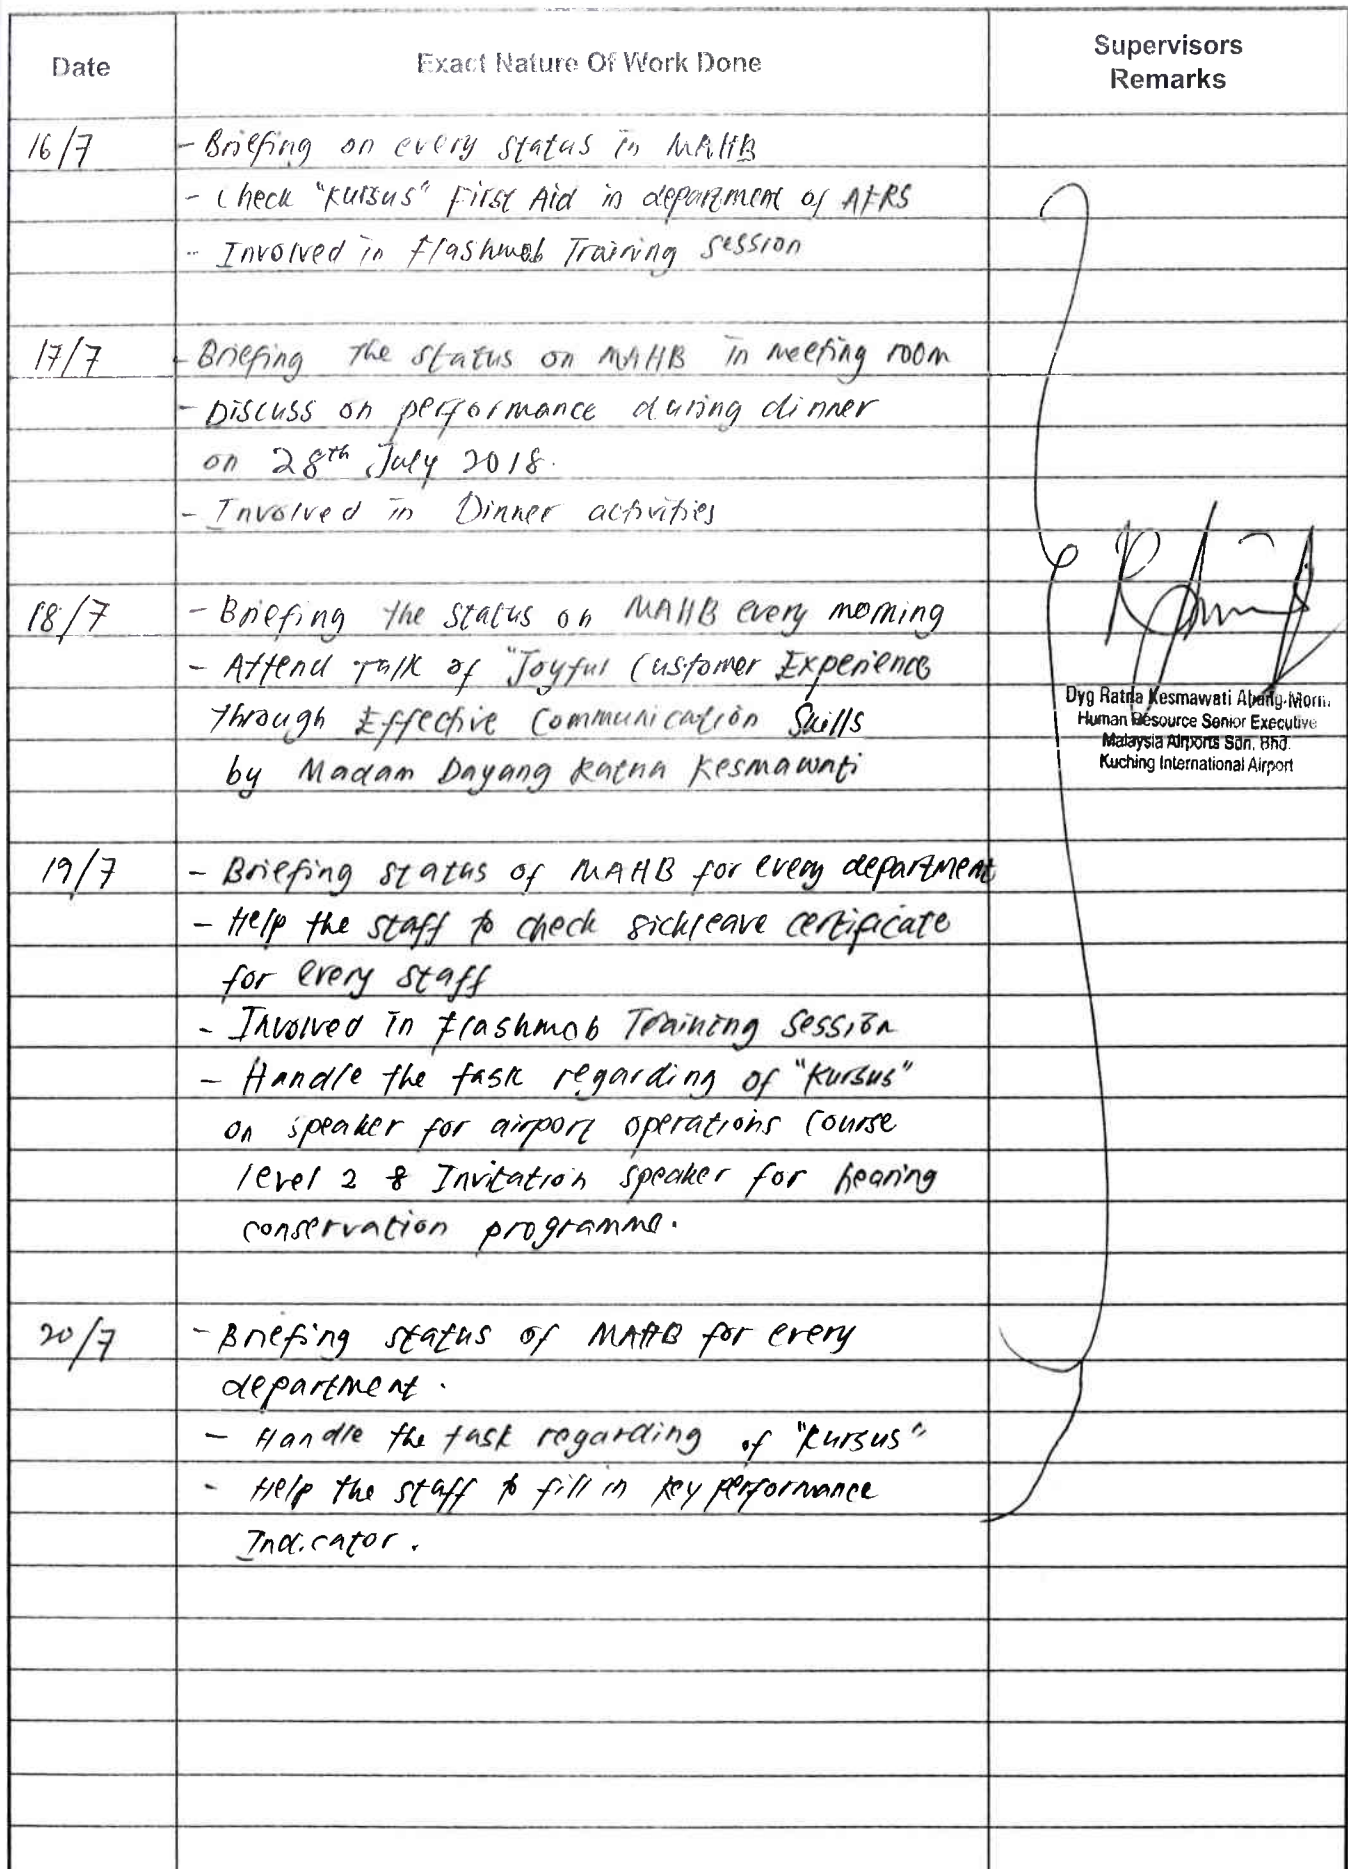 Date
Exact Nature Of Work Done
Supervisors
Remarks
16/7
- Briefing on every status in MAHB
- Check "Kursus" First Aid in department of AFRS
- Involved in Flashmob Training session
17/7
- Briefing the status on MAHB in meeting room
- Discuss on performance during dinner
on 28th July 2018.
- Involved in Dinner activities
18/7
- Briefing the status on MAHB every morning
- Attend Talk of "Joyful Customer Experience
through Effective Communication Skills
by Madam Dayang Ratna Kesmawati
Dyg Ratna Kesmawati Abang
Human Resource Senior Executive
Malaysia Airports Sdn. Bhd.
Kuching International Airport
19/7
- Briefing status of MAHB for every department
- Help the staff to check sickleave certificate
for every staff
- Involved in Flashmob Training Session
- Handle the task regarding of "Kursus"
on speaker for airport operations course
level 2 & Invitation speaker for hearing
conservation programme.
20/7
- Briefing status of MAHB for every
department.
- Handle the task regarding of "Kursus"
- Help the staff to fill in key performance
Indicator.